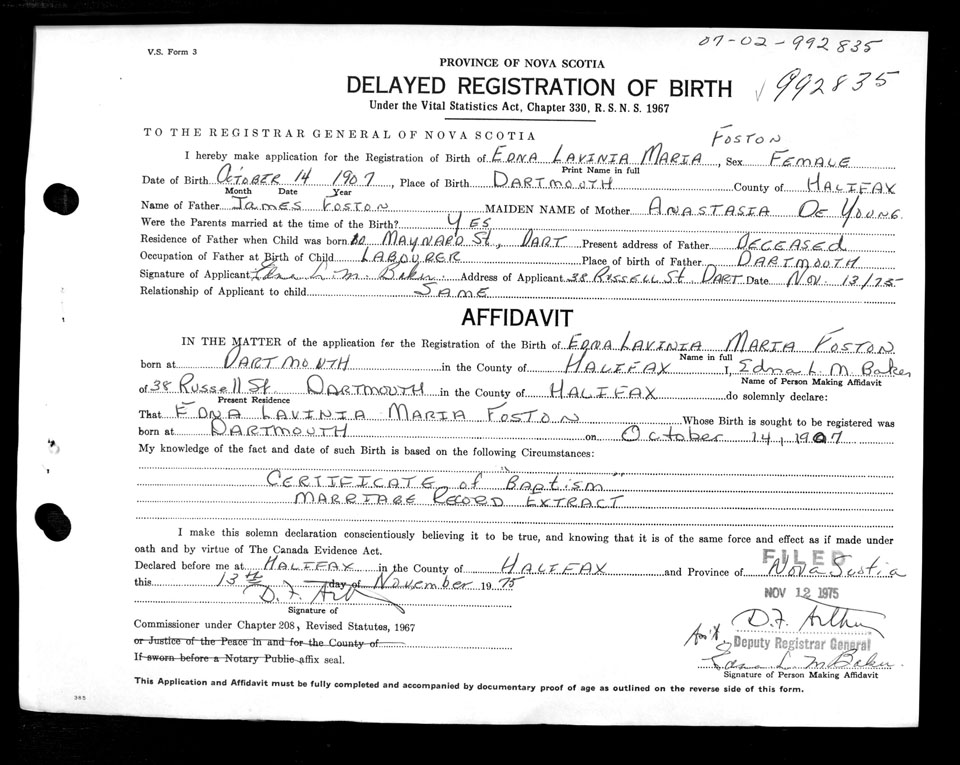 07-02-992835
V.S. Form 3
PROVINCE OF NOVA SCOTIA
DELAYED REGISTRATION OF BIRTH
√992835
Under the Vital Statistics Act, Chapter 330, R. S. N. S. 1967
TO THE REGISTRAR GENERAL OF NOVA SCOTIA
FOSTON
I hereby make application for the Registration of Birth of EDNA LAVINIA MARIA, Sex FEMALE
Print Name in full
Date of Birth OCTOBER 14 1907, Place of Birth DARTMOUTH County of HALIFAX
Month Date Year
Name of Father JAMES FOSTON MAIDEN NAME of Mother ANASTASIA DE YOUNG
Were the Parents married at the time of the Birth? YES
Residence of Father when Child was born MAYNARD St, DART Present address of Father DECEASED
Occupation of Father at Birth of Child LABOURER Place of birth of Father DARTMOUTH
Signature of Applicant Edna L. M. Baker Address of Applicant 38 RUSSELL St DART Date NOV. 13/75
Relationship of Applicant to child SAME
AFFIDAVIT
IN THE MATTER of the application for the Registration of the Birth of EDNA LAVINIA MARIA FOSTON
Name in full
born at DARTMOUTH in the County of HALIFAX I, Edna L. M Baker
Name of Person Making Affidavit
of 38 Russell St. DARTMOUTH in the County of HALIFAX do solemnly declare:
Present Residence
That EDNA LAVINIA MARIA FOSTON Whose Birth is sought to be registered was
born at DARTMOUTH on October 14, 1907
My knowledge of the fact and date of such Birth is based on the following Circumstances:
CERTIFICATE of "BAPTISM"
MARRIAGE RECORD EXTRACT
I make this solemn declaration conscientiously believing it to be true, and knowing that it is of the same force and effect as if made under
oath and by virtue of The Canada Evidence Act.
Declared before me at HALIFAX in the County of HALIFAX and Province of Nova Scotia
FILED
this 13th day of November 1975
NOV 12 1975
D. F. Arthur
Signature of
D. F. Arthur
Commissioner under Chapter 208, Revised Statutes, 1967
Deputy Registrar General
or Justice of the Peace in and for the County of
Edna L. M Baker
If sworn before a Notary Public affix seal.
Signature of Person Making Affidavit
This Application and Affidavit must be fully completed and accompanied by documentary proof of age as outlined on the reverse side of this form.
365